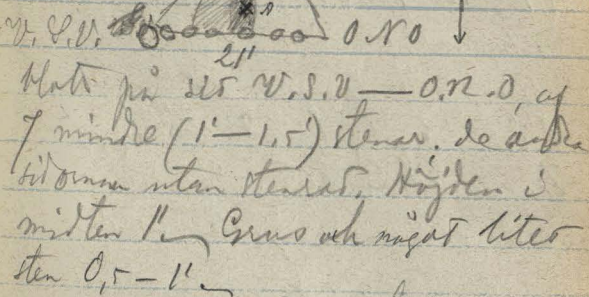 V.S.V. O N O
21'
blott på sid V.S.V — O.N.O, af
7 mindre (1'—1,5') stenar. de andra
sidorna utan stenrad. Höjden i
midten 1'. Grus och något litet
sten 0,5 — 1'.